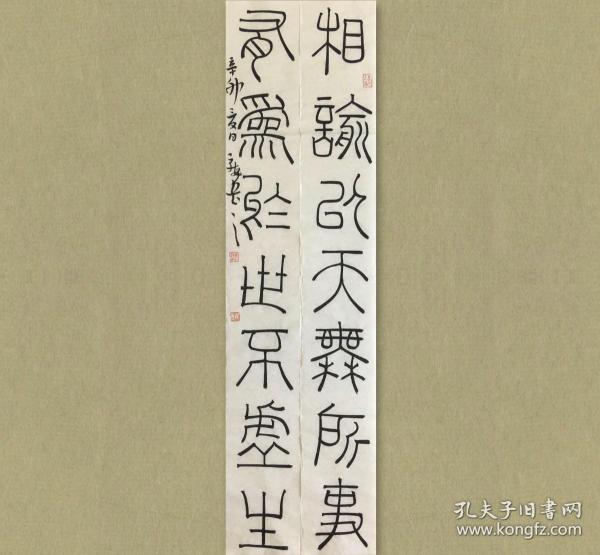 相諭以天無所事
有為於世不虛生
辛卯夏日
孔夫子旧书网
www.kongfz.com